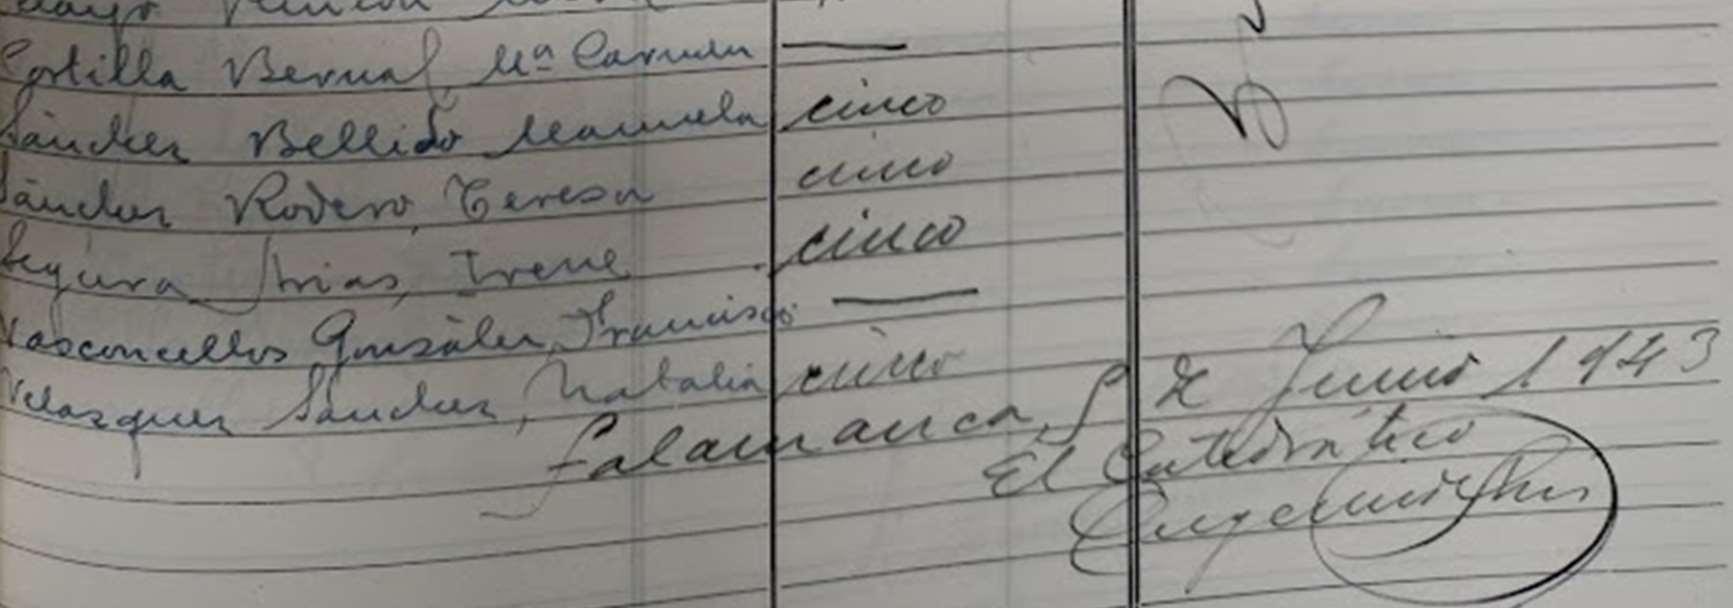 Portilla Bernal, Mª Carmen —
Sánchez Bellido Manuela cinco
Sánchez Rodero, Teresa cinco
Segura Arias, Irene cinco
Vasconcellos González, Francisco —
Velazquez Sánchez, Natalia cinco
Salamanca, de Junio 1943
El Catedrático